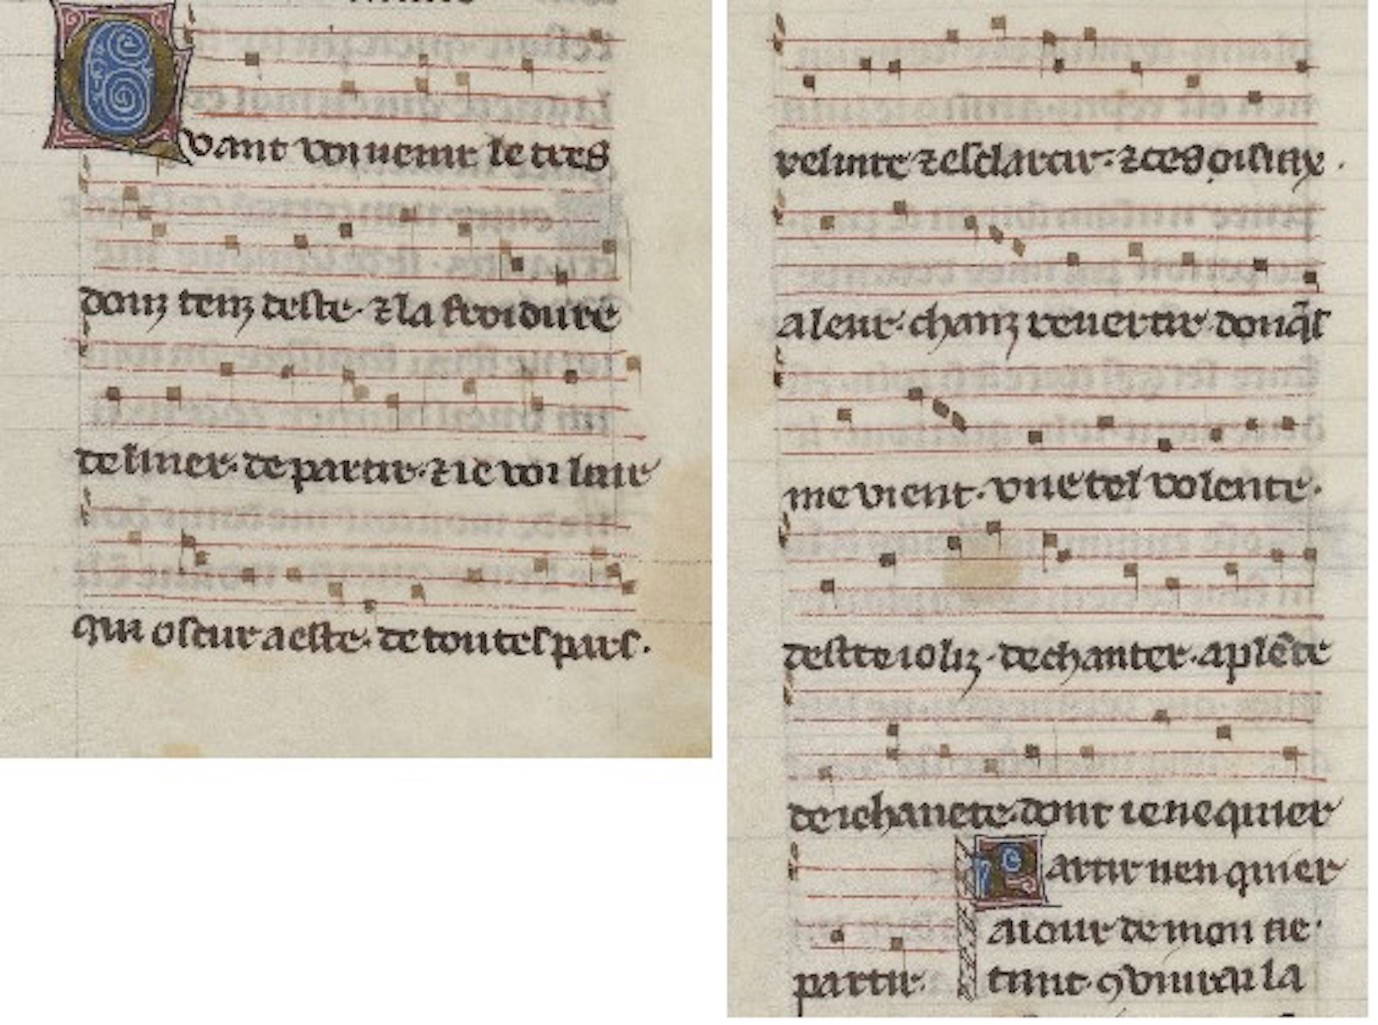 Quant voi uenir le tres
douz tenz deste. ⁊ la froidure
definer. departir. ⁊ ie voi laur
qui oscur a este. de toutes pars.
refinte ⁊ esclarcir. ⁊ ces oisiax
a leur. chanz reuertir. don q̃l
me vient. vne tel volente.
destre ioliz. de chanter. a plẽte
de iehanete. dont ie ne quier
partir.
Partir nen quier
a iour de mon ae.
tant. ꝯ viurai la